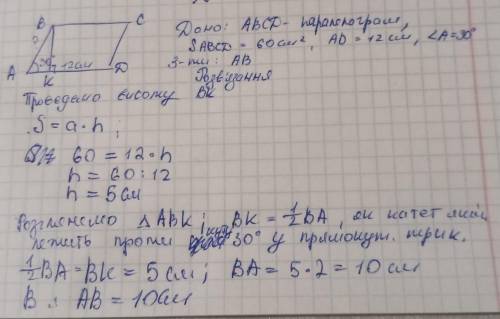 B C
?
A 30° 12см D
K
Дано: ABCD - паралелограм,
SABCD = 60см², AD = 12см, ∠A=30°
З-ти: AB
Розв'язання
Проведемо висоту BK
S = a · h ;
60 = 12 · h
h = 60 : 12
h = 5 см
Розглянемо △ ABK ; BK = ½ BA , як катет який
лежить проти кута 30° у прямокут. трик.
½ BA = BK = 5 см ; BA = 5 · 2 = 10 см
В : AB = 10см